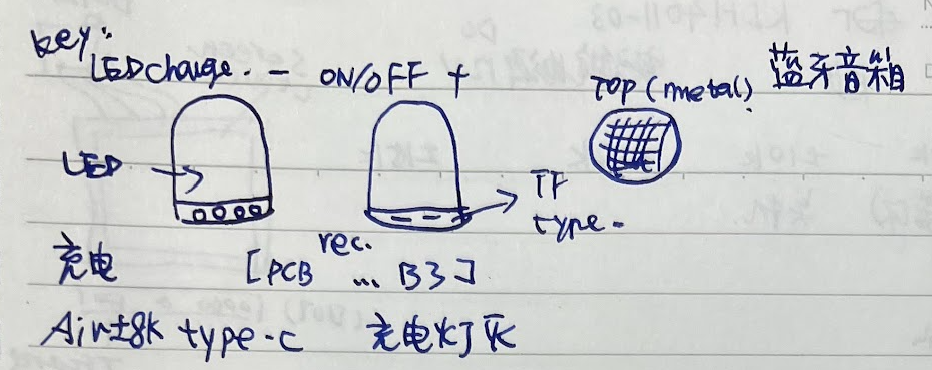 key:
LED change. - ON/OFF +
TOP (metal). 蓝牙音箱
LED
TF
type-
rec.
充电 [PCB ... B3]
Air±8k type-c 充电灯灰